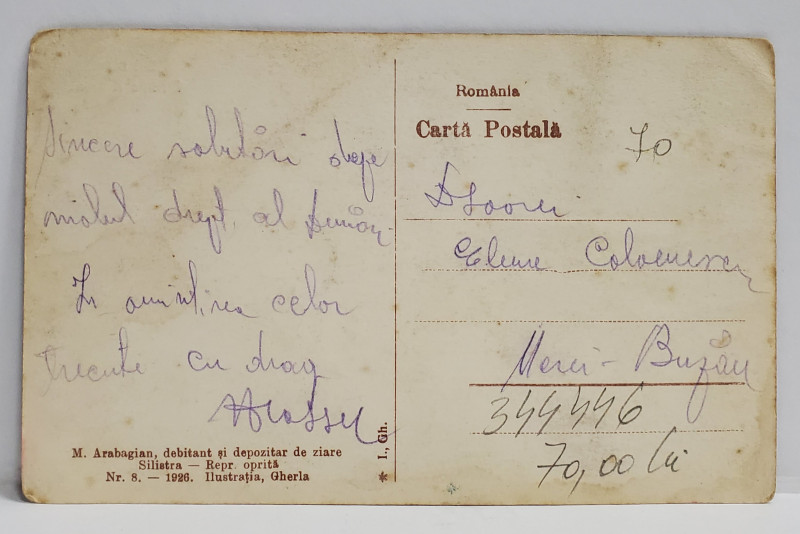 Sincere salutări depe
malul drept al Dunării
În amintirea celor
trecute cu drag
M. Arabagian, debitant și depozitar de ziare
Silistra — Repr. oprită
Nr. 8. — 1926. Ilustrația, Gherla
* I., Gh.
România
Cartă Postală
70
Dșoarei
Elena
Merei - Buzău
344446
70,00 lei